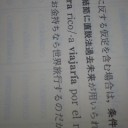 に反する仮定を含む場合は，条件
結節に直説法過去未来が用いられ
ra rico/-a viajaría por el m
お金持ちなら世界旅行するのだ